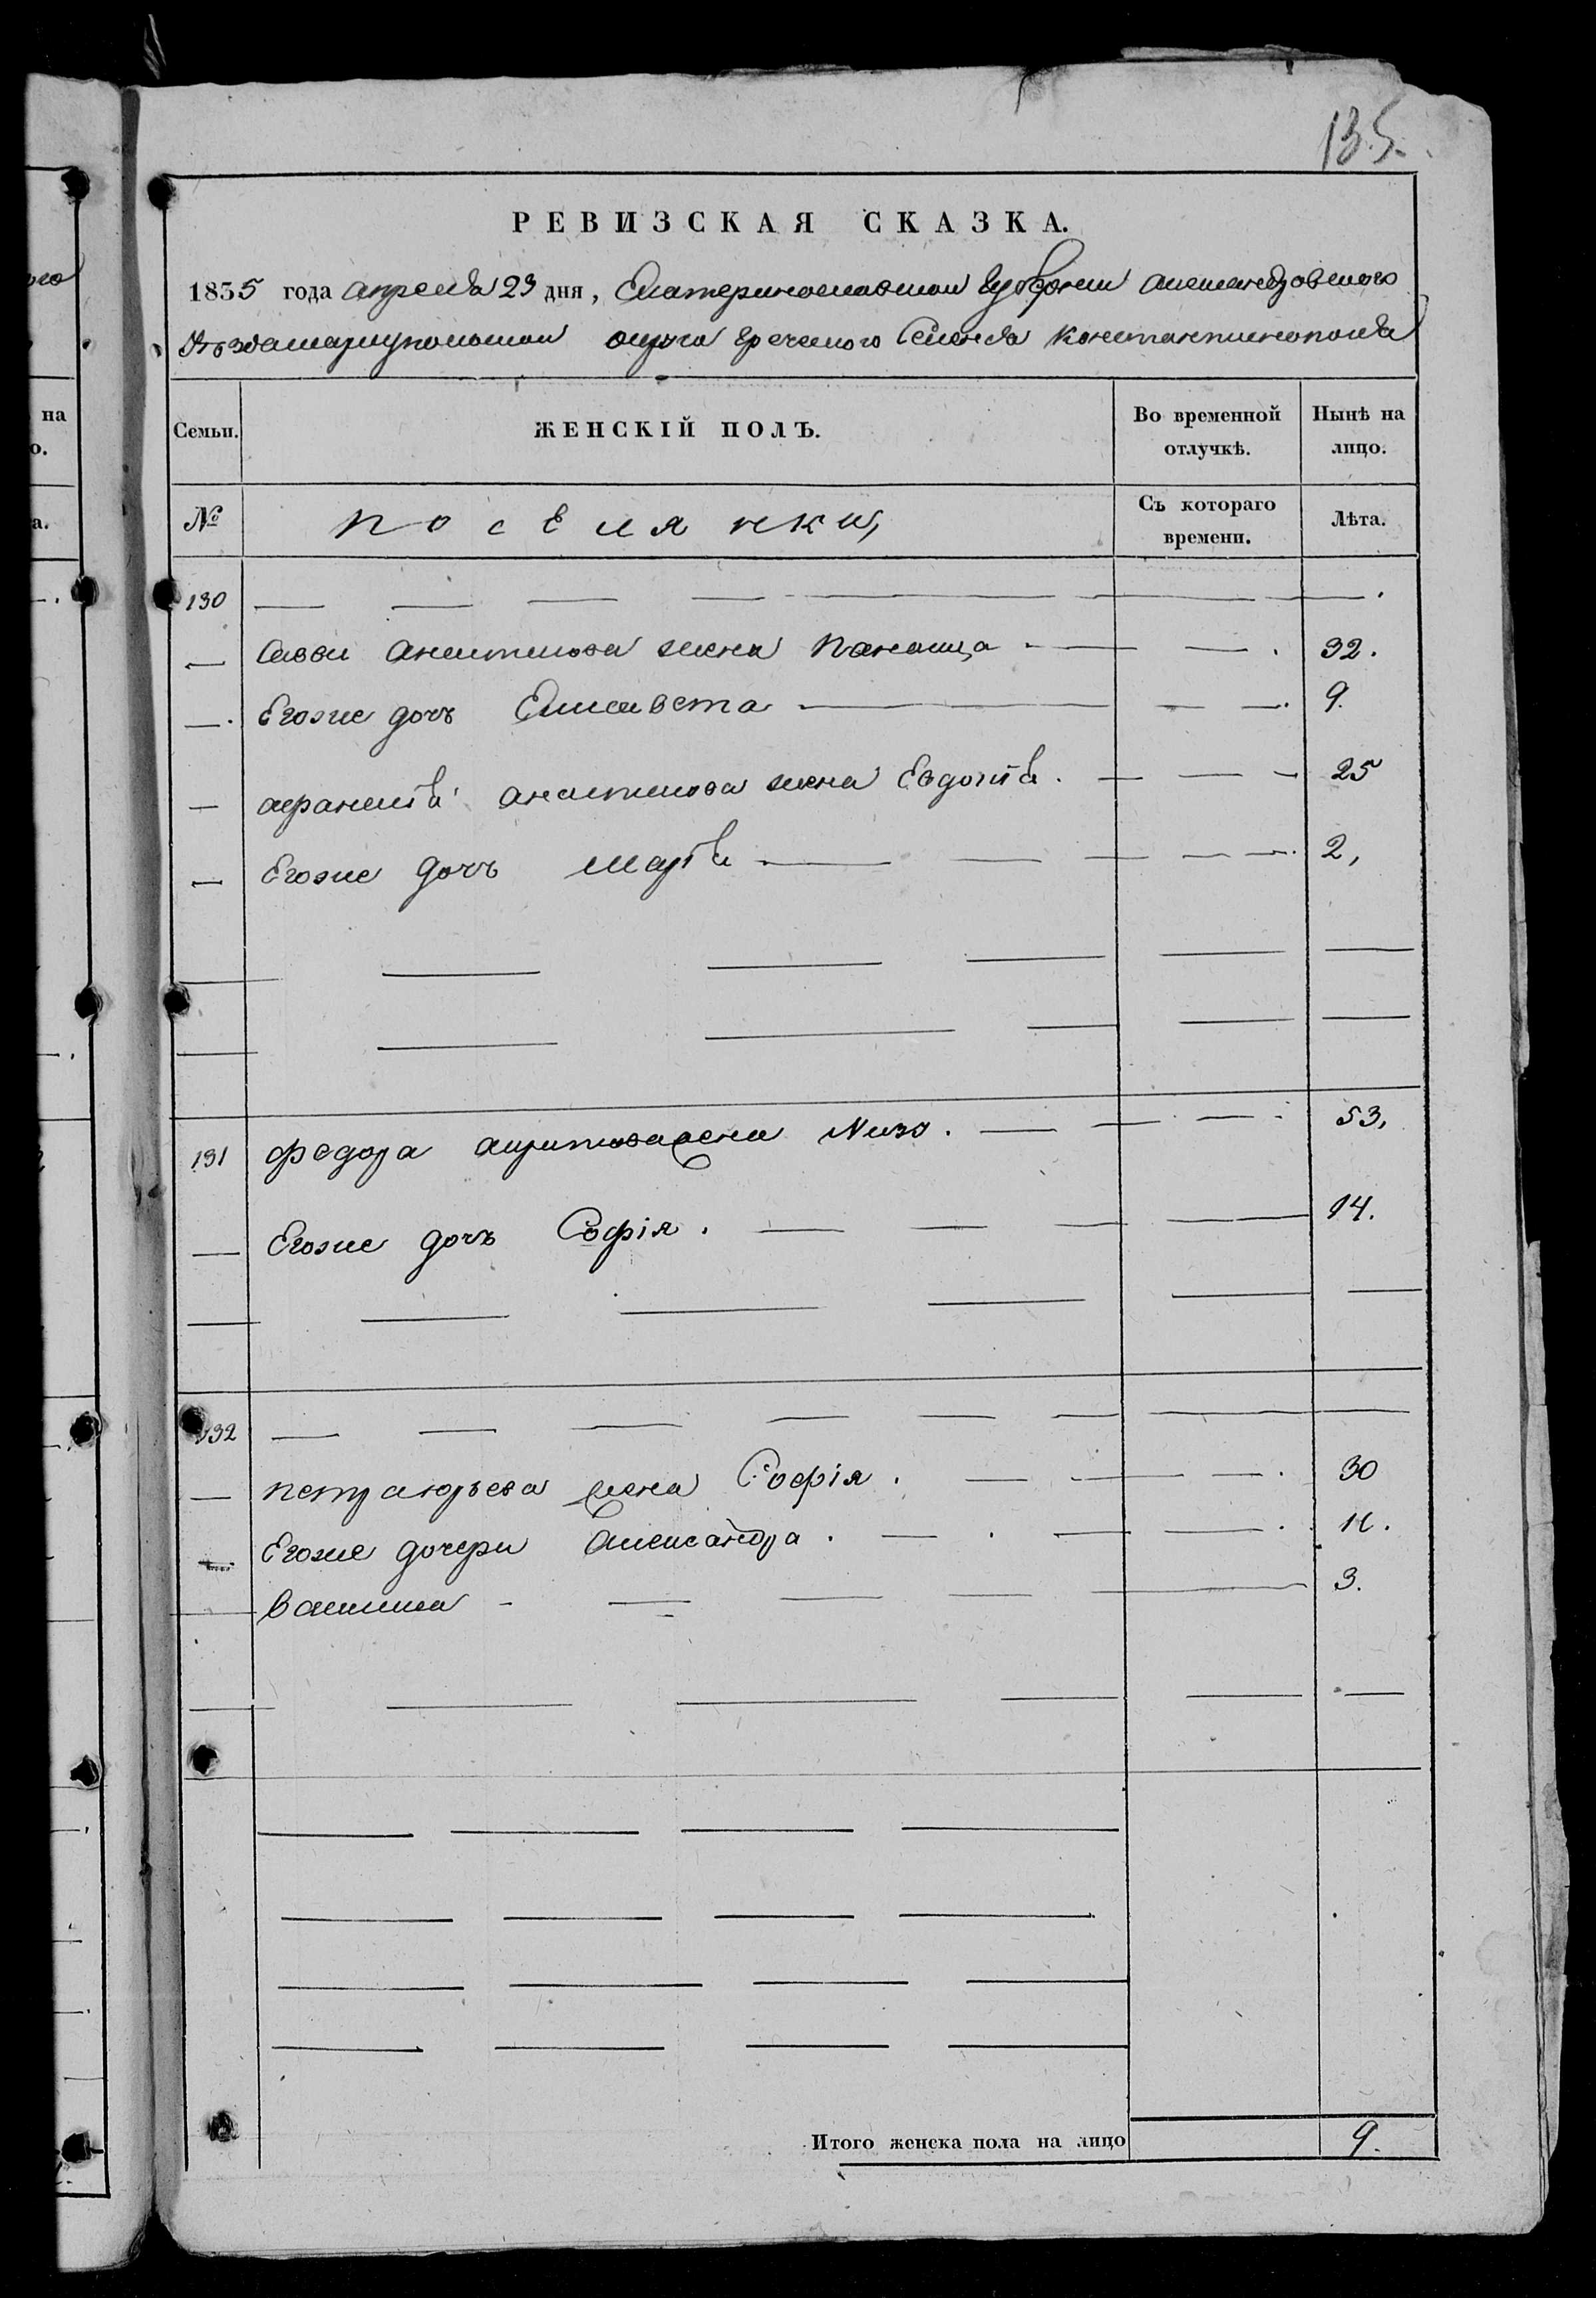 135.
РЕВИЗСКАЯ СКАЗКА.
1835 года апреля 23 дня, Екатеринославской Губернии Александровского
Уѣзда мариупольской округи греческого Селенія Константинополя
Семьи. ЖЕНСКІЙ ПОЛЪ. Во временной отлучкѣ. Нынѣ на лицо.
№ поселянки, Съ котораго времени. Лѣта.
130
Савви жена 32.
Егоже дочь Елисавета 9.
жена Евдокія 25
Егоже дочь Марія 2,
131 федора жена 53,
Егоже дочь Софія. 14.
132
петра юрьева жена Софія. 30
Егоже дочери Александра. 11.
Василиса 3.
Итого женска пола на лицо 9.
на
о.
а.